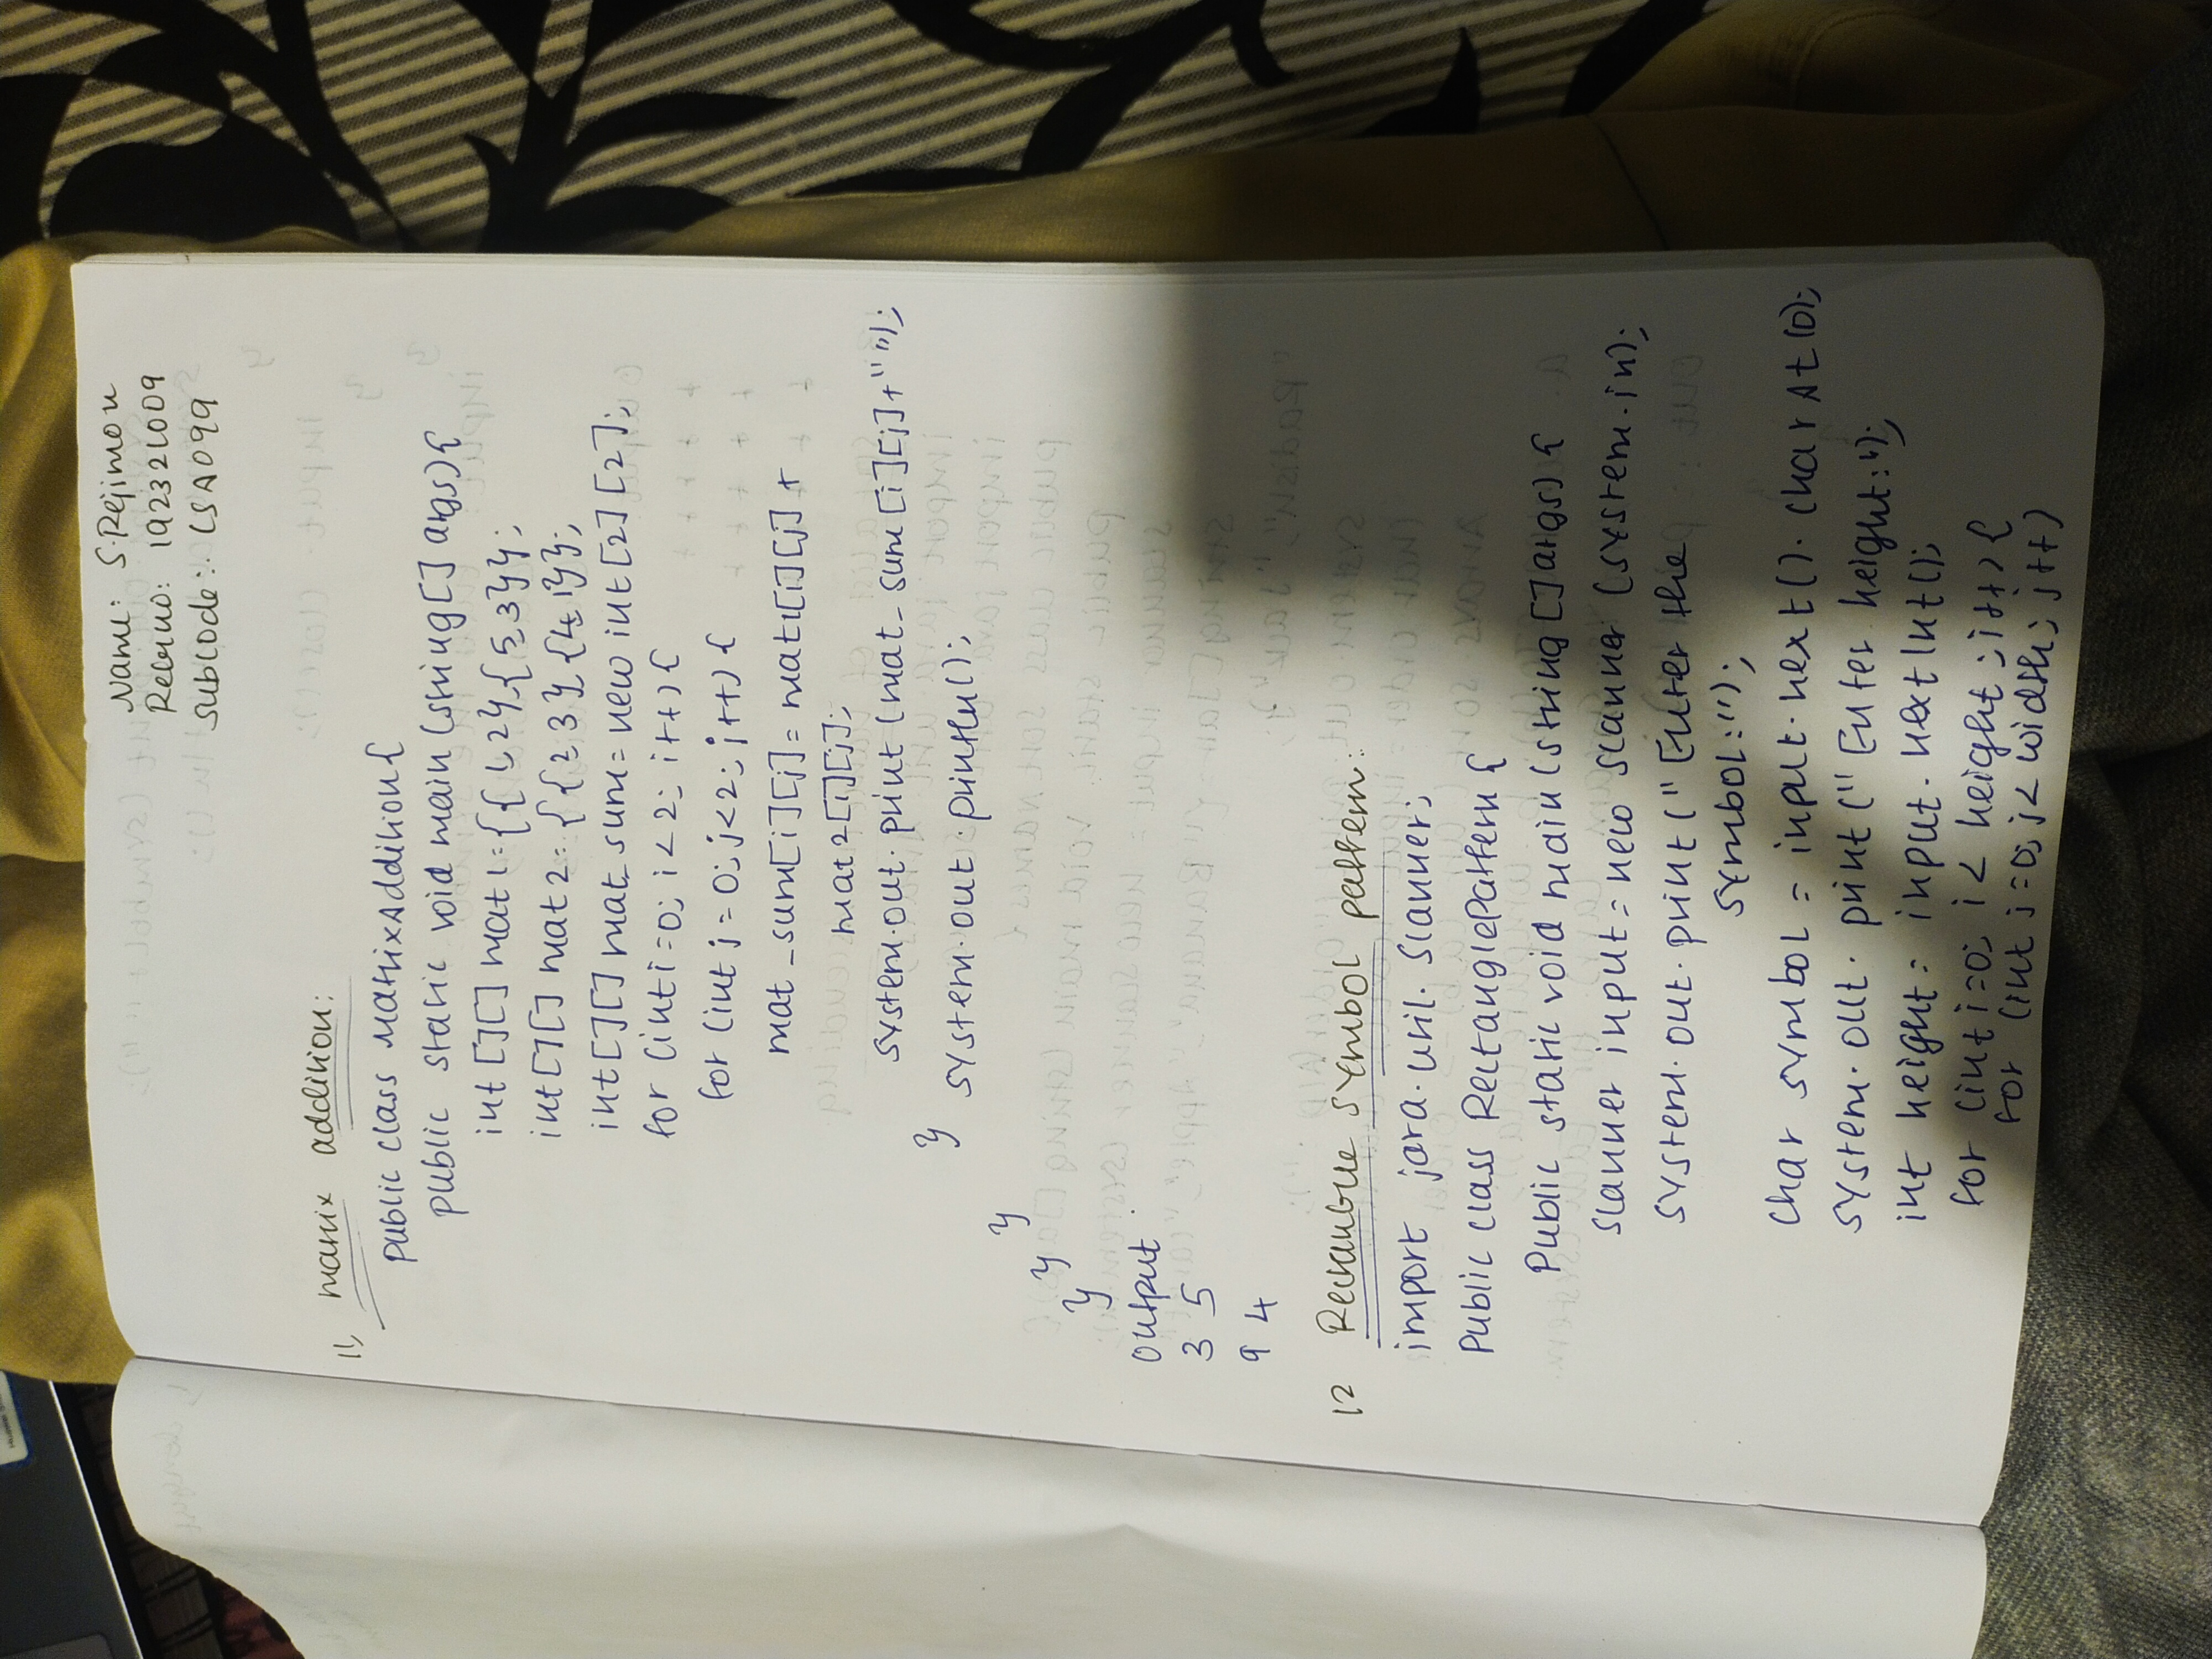 Name: S.Rejimon
Regno: 192321009
Subcode: CSA099
11, matrix addition:
public class MatrixAddition{
public static void main (string[] args){
int [][] mat1={{1,2},{5,3}};
int[][] mat2={{2,3},{4,1}};
int[][] mat_sum=new int[2][2];
for (int i=0; i<2; i++){
for (int j=0; j<2; j++){
mat_sum[i][j]=mat1[i][j]+
mat2[i][j];
system.out.print (mat_sum[i][j]+" ");
}
system.out.println();
}
}
}
output
3 5
9 4
12 Rectangle symbol pattern:
import java.util.Scanner;
Public class RectanglePattern{
Public static void main(string[]args){
scanner input=new scanner (system.in);
system.out.print("Enter the
symbol:");
char symbol=input.next().charAt(0);
system.out.print("Enter height:");
int height=input.nextInt();
for (int i=0; i<height; i++){
for (int j=0; j<width; j++)